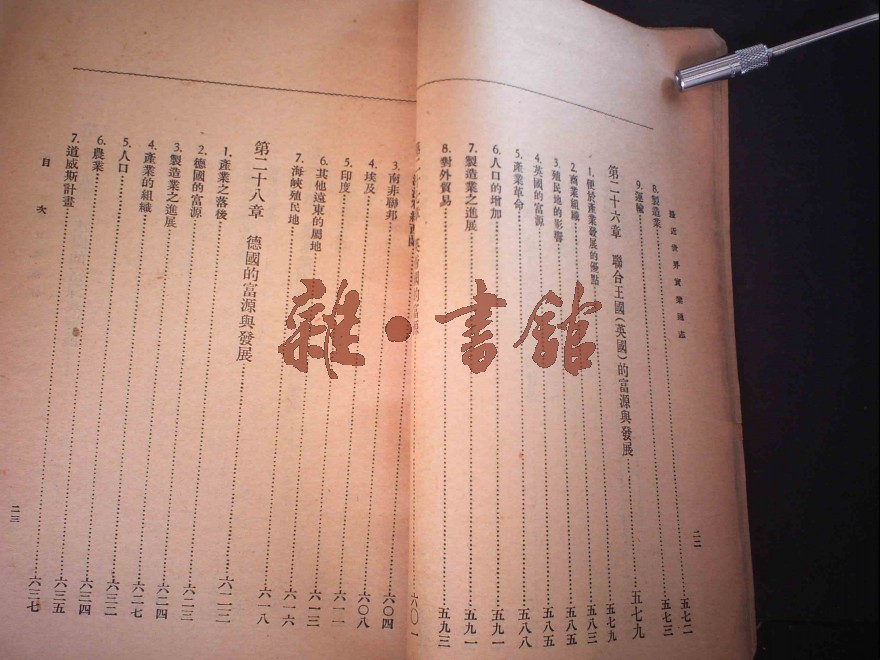 最近世界實業通志
8. 製造業……五七二
9. 運輸……五七三
第二十六章 聯合王國(英國)的富源與發展……五七九
1. 便於產業發展的優點……五七九
2. 商業組織……五八三
3. 殖民地的影響……五八五
4. 英國的富源……五八五
5. 產業革命……五八八
6. 人口的增加……五九一
7. 製造業之進展……五九一
8. 對外貿易……五九三
二二
六〇一
六〇四
3. 南非聯邦……六〇八
4. 埃及……六一一
5. 印度……六一三
6. 其他遠東的屬地……六一六
7. 海峽殖民地……六一八
第二十八章 德國的富源與發展
1. 產業之落後……六二三
2. 德國的富源……六二四
3. 製造業之進展……六二七
4. 產業的組織……六三二
5. 人口……六三四
6. 農業……六三五
7. 道威斯計畫……六三七
目 次
二三
雜·書館